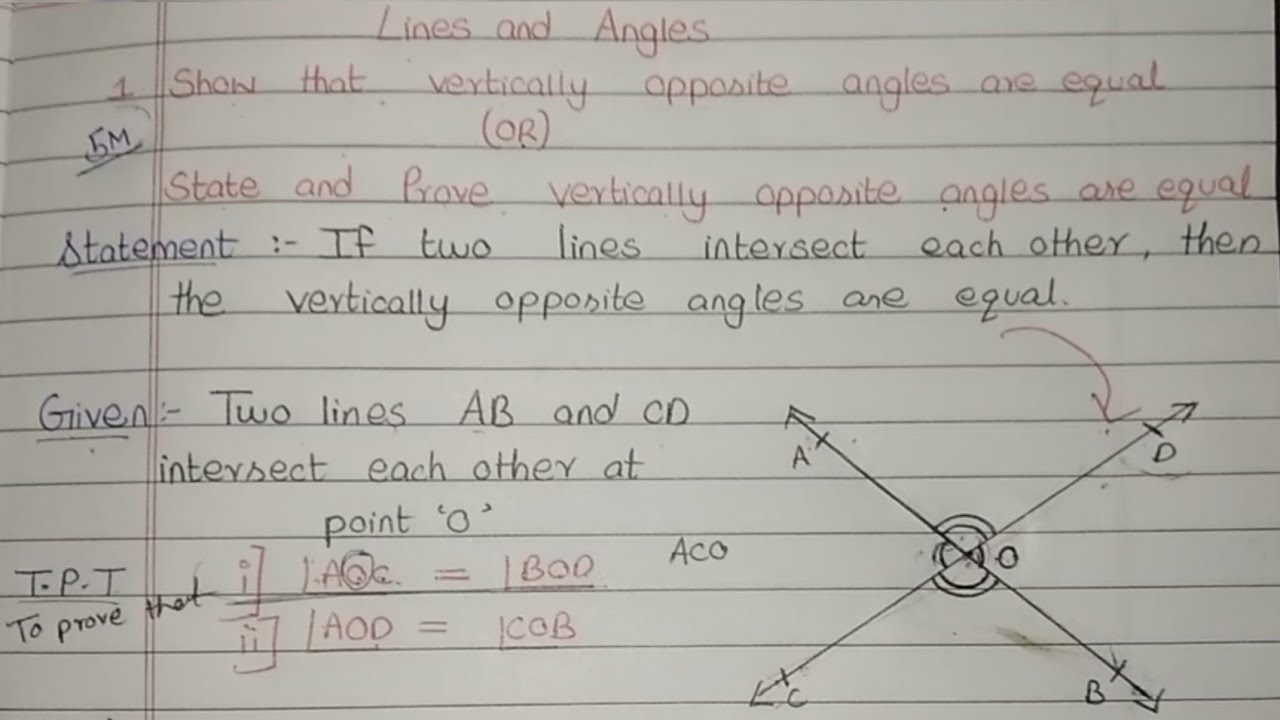 Lines and Angles
1 Show that vertically opposite angles are equal
(OR)
5M
State and Prove vertically opposite angles are equal
Statement :- If two lines intersect each other, then
the vertically opposite angles are equal.
Given :- Two lines AB and CD
intersect each other at
point 'O'
T.P.T
To prove that
i] ∠AOC = ∠BOD
ii] ∠AOD = ∠COB
ACO
A
D
O
C
B